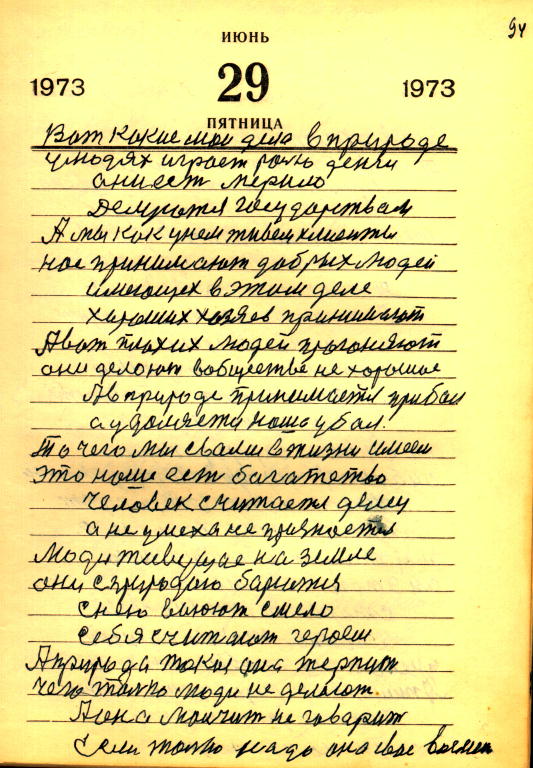 94
ИЮНЬ
1973 29 1973
ПЯТНИЦА
Вот какие мои дела в природе
у людях играет ролю денги
они ест мерило
государствам
А мы как у нем живем клиенты
нас принимают добрых людей
имеющех в этом деле
хароших хозяев принимают
А вот плохих людей прогоняют
они делоют в обществе не хорошое
А в природе принимается прибал
а удоляется наша убал.
То чего мы с вами в жизни имеем
это наше ест багатство
человек считается делец
а не умеха не признается
Люди живущие на земле
они с природаю барются
с нею ваюют смело
себя считают героем
А природа такая она терпит
чего толко люди не делают.
А она молчит не говарит
Если толко надо она свае возмет